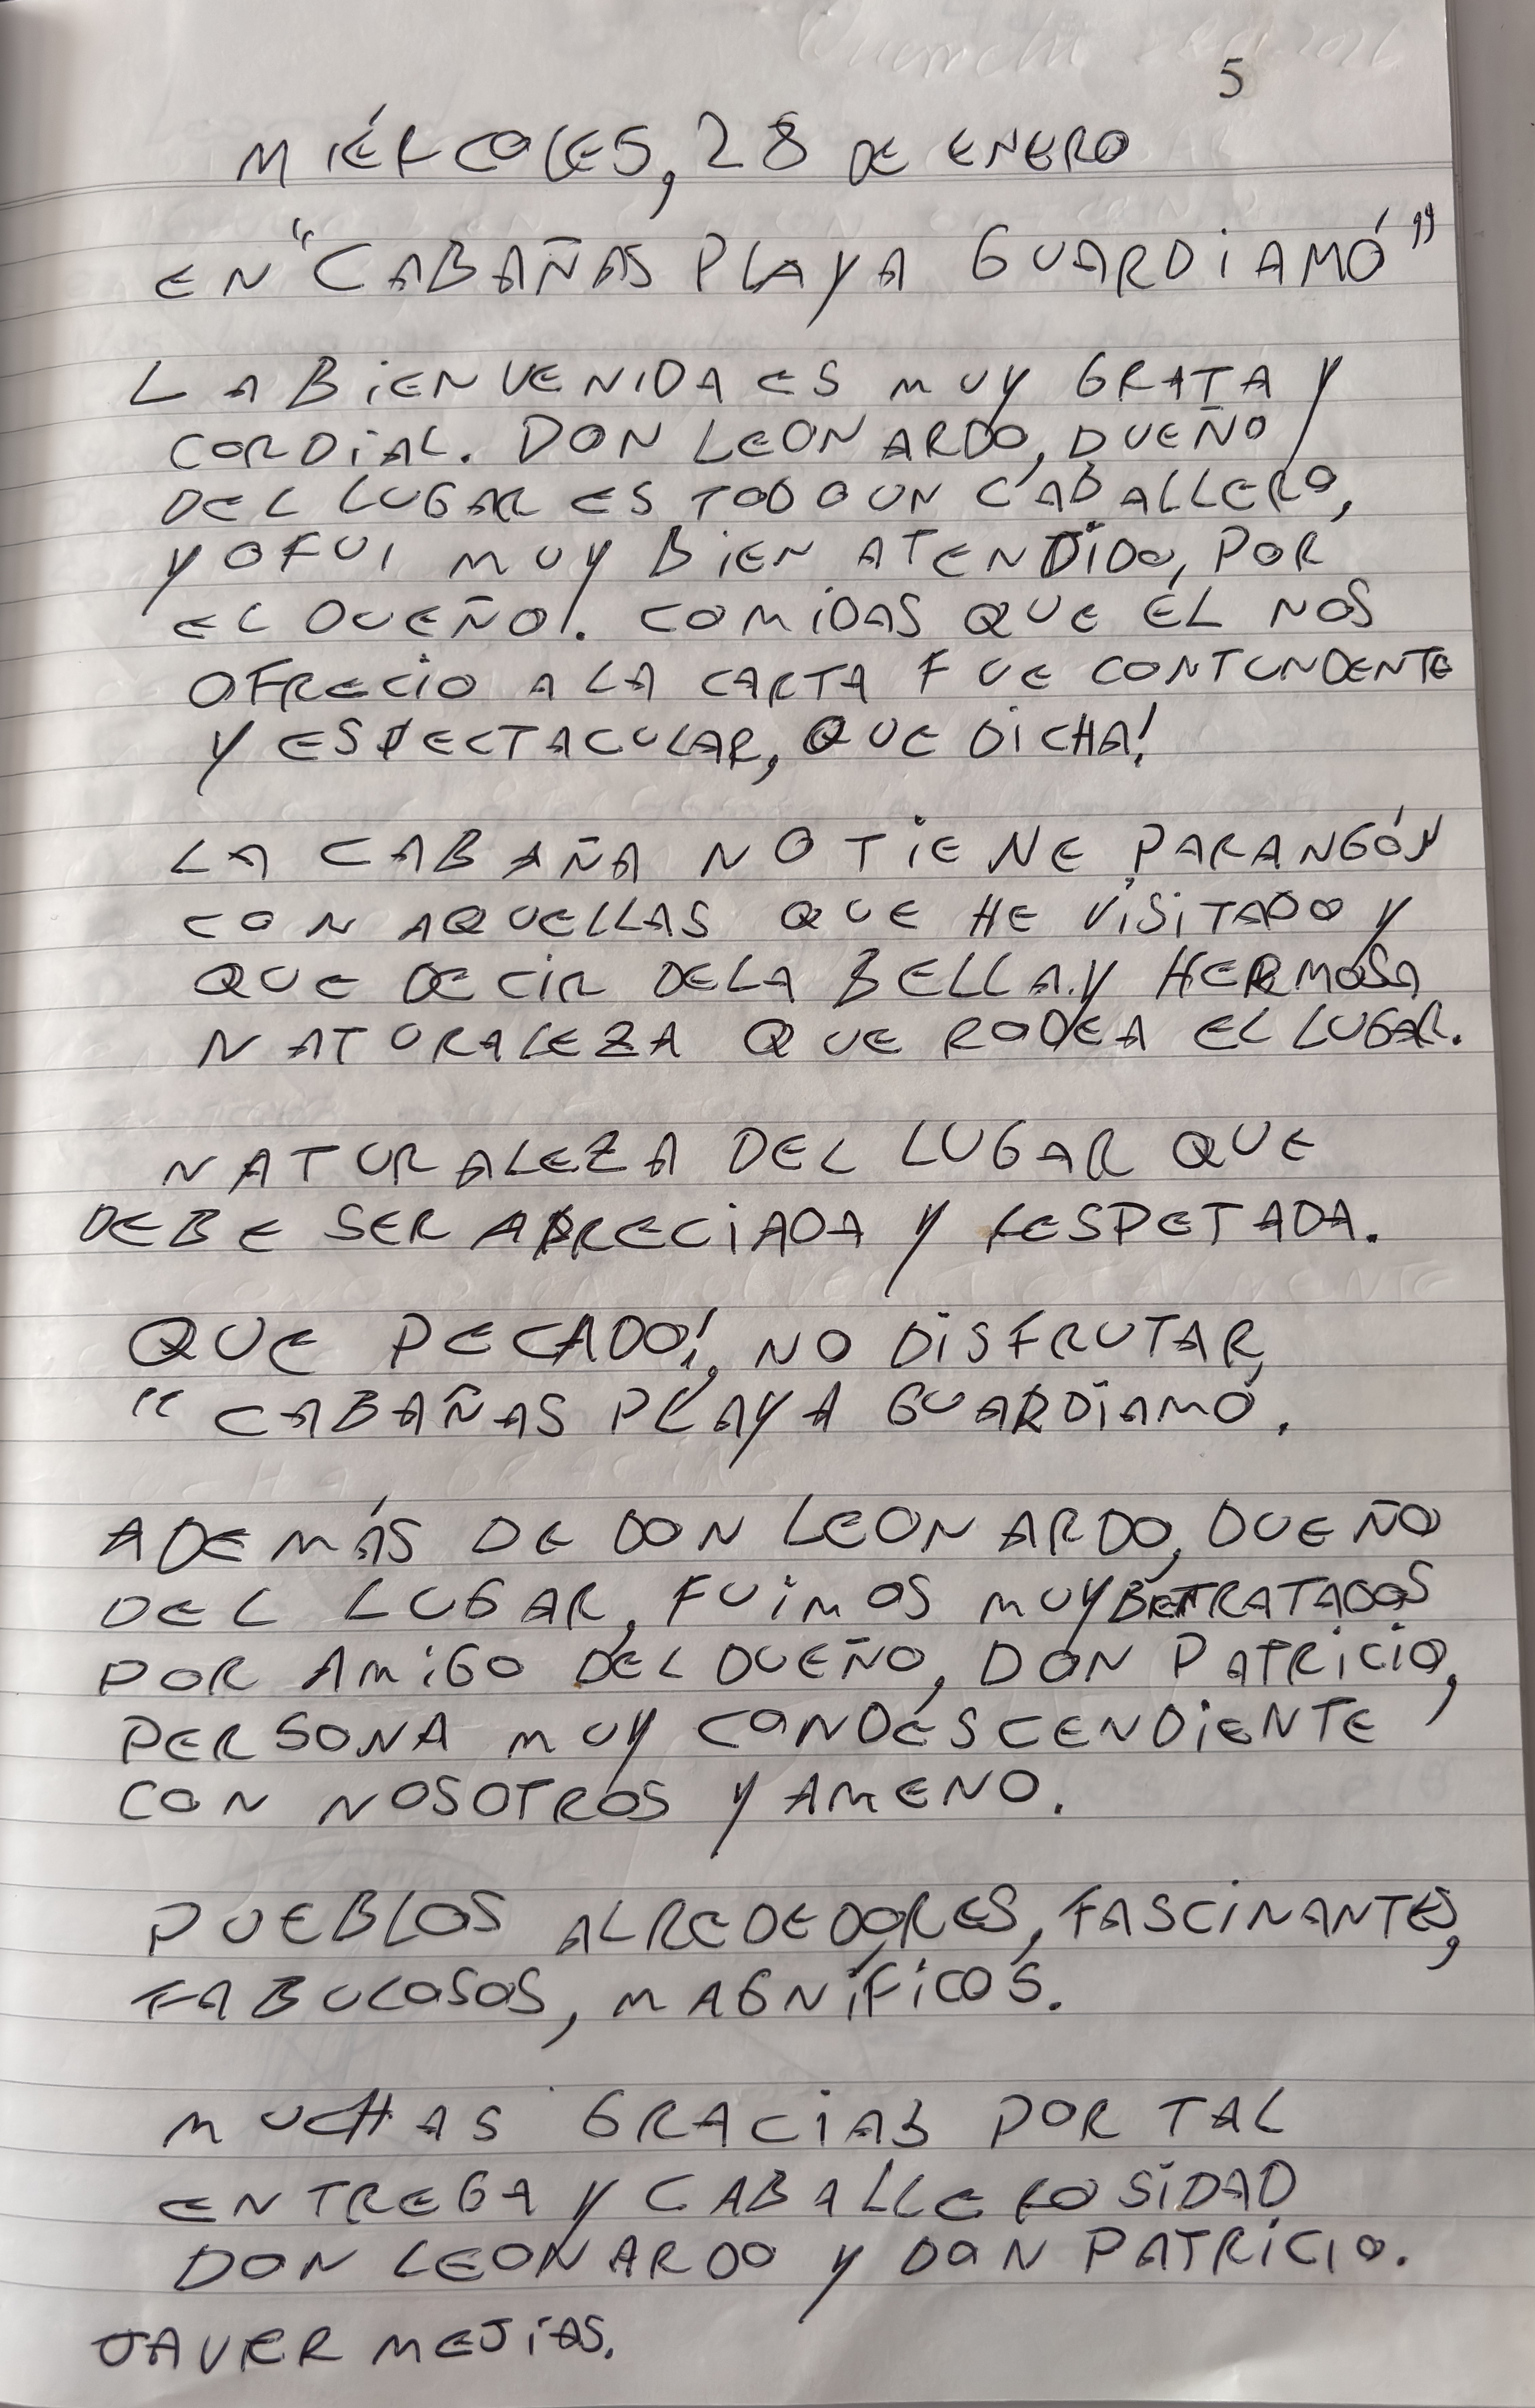 5
MIÉRCOLES, 28 DE ENERO
EN "CABAÑAS PLAYA GUARDIAMÓ"
LA BIENVENIDA ES MUY GRATA Y
CORDIAL. DON LEONARDO, DUEÑO
DEL LUGAR ES TODO UN CABALLERO,
YO FUI MUY BIEN ATENDIDO, POR
EL DUEÑO!. COMIDAS QUE ÉL NOS
OFRECIO A LA CARTA FUE CONTUNDENTE
Y ESPECTACULAR, QUE DICHA!
LA CABAÑA NO TIENE PARANGÓN
CON AQUELLAS QUE HE VISITADO Y
QUE DECIR DE LA BELLA Y HERMOSA
NATURALEZA QUE RODEA EL LUGAR.
NATURALEZA DEL LUGAR QUE
DEBE SER APRECIADA Y RESPETADA.
QUE PECADO!, NO DISFRUTAR,
"CABAÑAS PLAYA GUARDIAMÓ.
ADEMÁS DE DON LEONARDO, DUEÑO
DEL LUGAR, FUIMOS MUY TRATADOS
POR AMIGO DEL DUEÑO, DON PATRICIO,
PERSONA MUY CONDESCENDIENTE
CON NOSOTROS Y AMENO.
PUEBLOS ALREDEDORES, FASCINANTES,
FABULOSOS, MAGNÍFICOS.
MUCHAS GRACIAS POR TAL
ENTREGA Y CABALLEROSIDAD
DON LEONARDO Y DON PATRICIO.
JAVER MEJIAS.